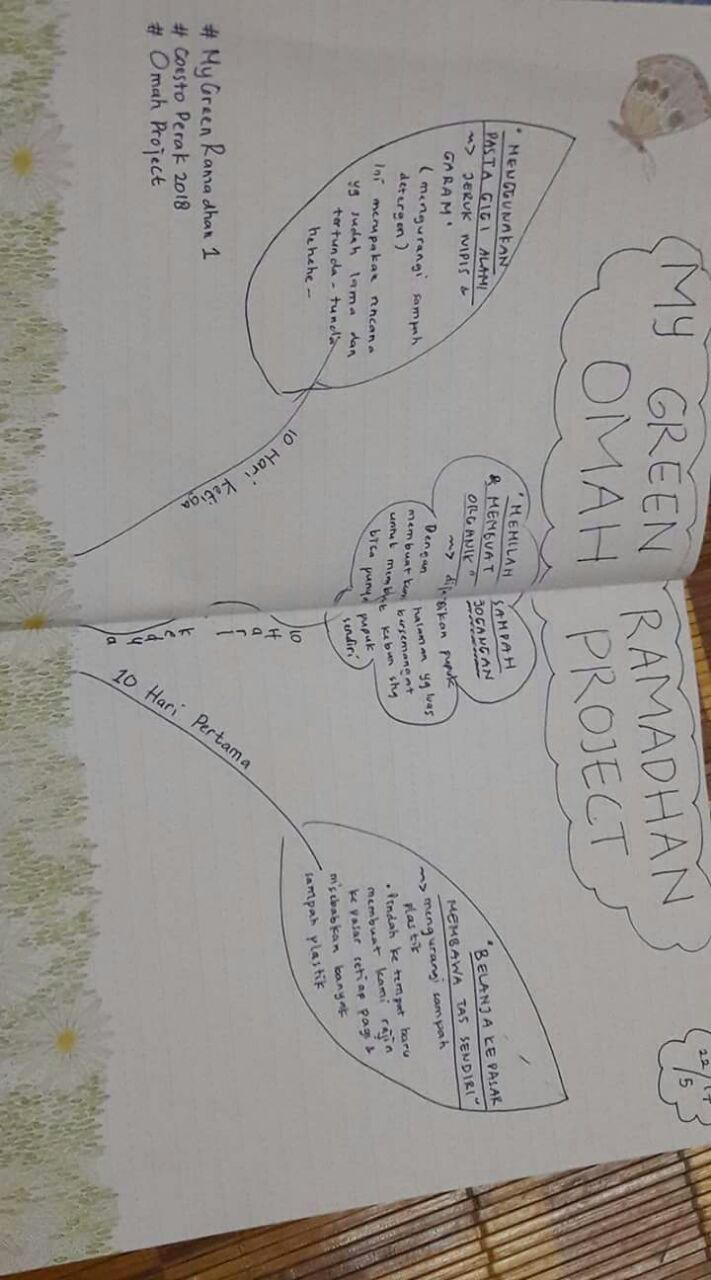 MY GREEN RAMADHAN
OMAH PROJECT
"MENGGUNAKAN
PASTA GIGI ALAMI
~> JERUK NIPIS &
GARAM"
(mengurangi sampah
detergen)
Ini merupakan rencana
yg sudah lama dan
tertunda-tunda
hehehe-
10 Hari Ketiga
"MEMILAH SAMPAH
& MEMBUAT JOGANGAN
ORGANIK"
~> dijadikan pupuk
Dengan halaman yg luas
membuatku bersemangat
untuk membuat kebun shg
bisa punya pupuk
sendiri
10
Hari
kedua
"BELANJA KE PASAR
MEMBAWA TAS SENDIRI"
~> mengurangi sampah
plastik
• Pindah ke tempat baru
membuat kami rajin
ke pasar setiap pagi &
misebabkan banyak
sampah plastik
10 Hari Pertama
# My Green Ramadhan 1
# Coesto Perak 2018
# Omah Project